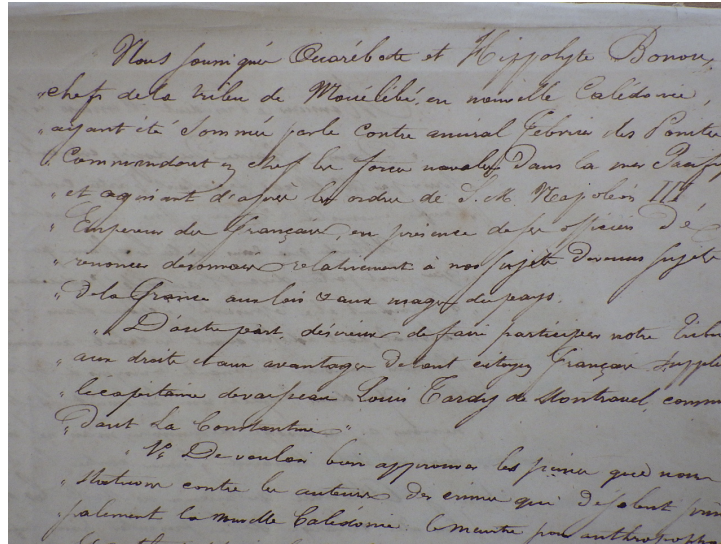 Nous soussigné Ouarébate et Hippolyte Bonou,
" chefs de la tribu de Mouélébé, en nouvelle Calédonie,
" ayant été sommés par le Contre amiral Febvrier des Pointes
" Commandant en chef les forces navales dans la mer Pacifi
" et agissant d'après les ordre de S. M. Napoléon III
" Empereur des français, en présence de ses officiers de
" renoncer désormais relativement à nos sujets devenus sujets
" de la France aux lois & aux usages du pays.
" D'autre part, désireux de faire participer notre tribu
" aux droits et aux avantages de tout citoyen français suppli
" le capitaine de vaisseau Louis Tardy de Montravel, comm
" dant la Constantine "
" 1° De vouloir bien approuver les peines que nous
" statuons contre les auteurs des crimes qui désolent prin
" palement la nouvelle Calédonie le meurtre pour anthropopha